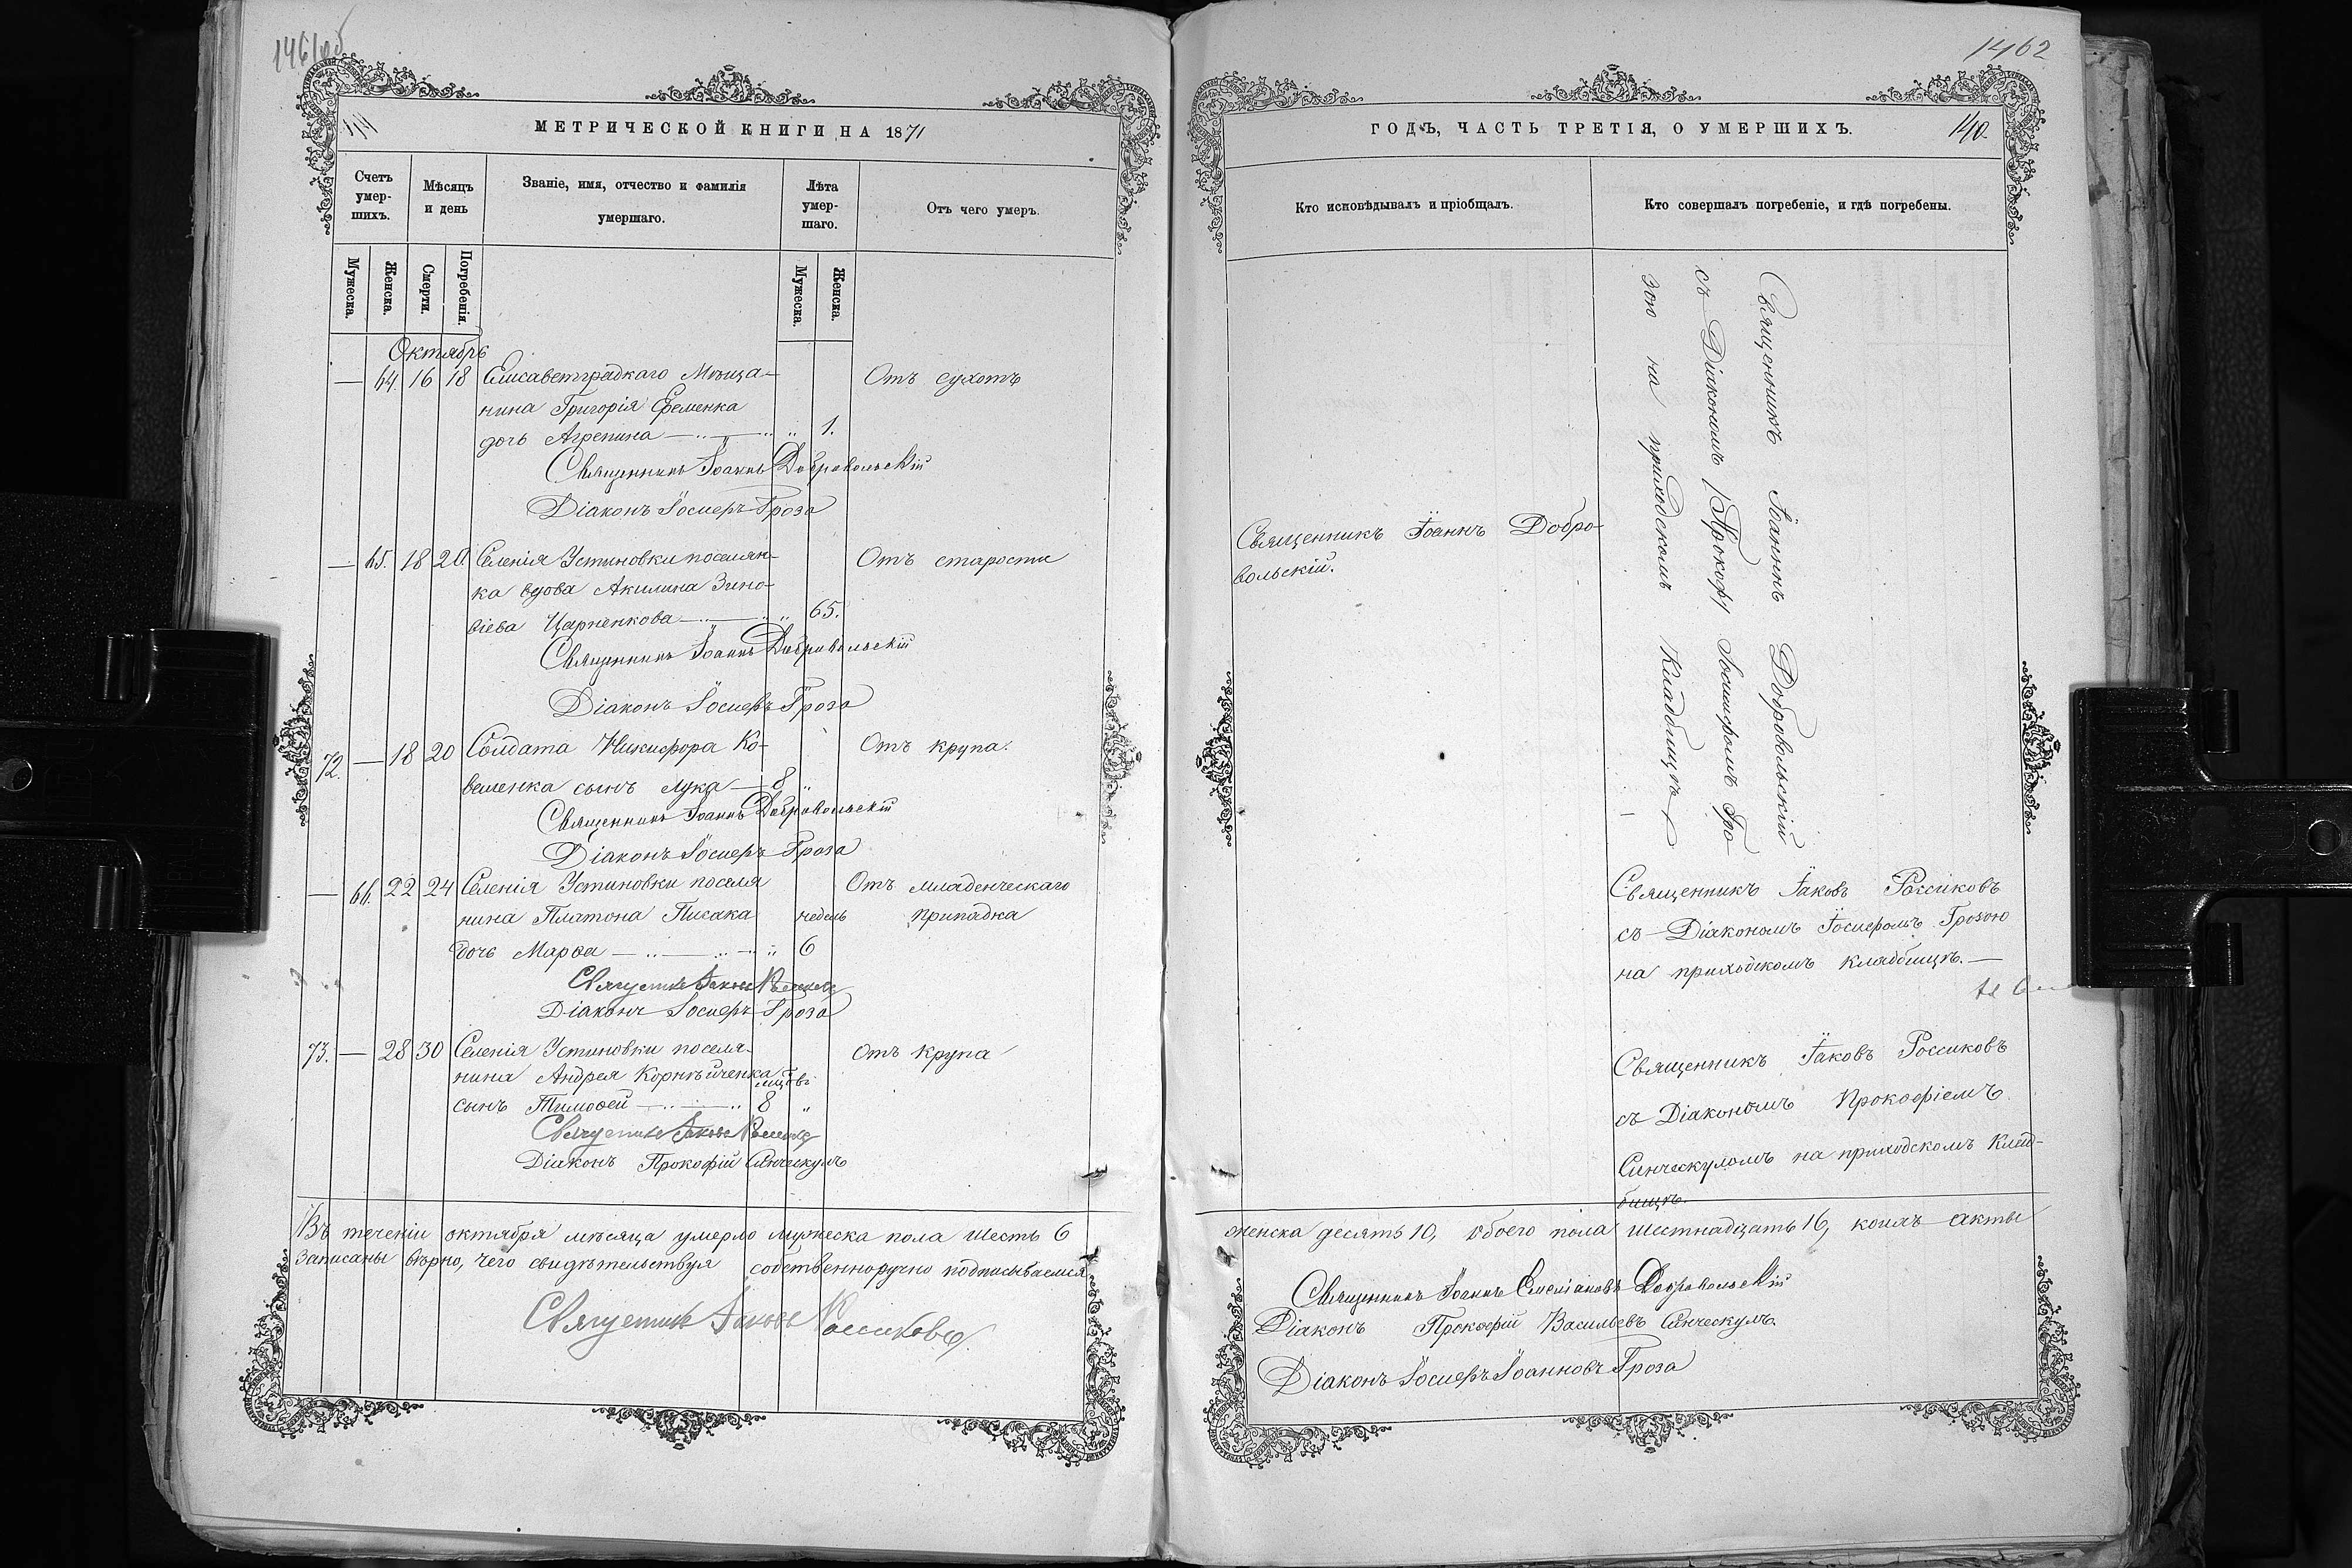 1461об
114
МЕТРИЧЕСКОЙ КНИГИ НА 1871
Счетъ умер-шихъ.
Мѣсяцъ и день
Званіе, имя, отчество и фамилія умершаго.
Лѣта умер-шаго.
Отъ чего умеръ.
Мужеска.
Женска.
Смерти.
Погребенія.
Мужеска.
Женска.
Октябрь
— 64. 16 18 Елисаветградкаго Мѣща- Отъ сухотъ
нина Григорія Еременка
дочь Агрепина — 1.
Священникъ Іоаннъ Добровольскій
Діаконъ Іосифъ Гроза
— 65. 18 20. Селенія Устиновки поселян- Отъ старости
ка вдова Акилина Зино-
віева Царненкова — 65.
Священникъ Іоаннъ Добровольскій
Діаконъ Іосифъ Гроза
72. — 18 20 Солдата Никифора Ко- Отъ крупа.
веленка сынъ Лука — 8 "
Священникъ Іоаннъ Добровольскій
Діаконъ Іосифъ Гроза
— 66. 22 24 Селенія Устиновки поселя Отъ младенческаго
нина Платона Писака недель припадка
дочь Марѳа — 6
Священникъ Іаковъ Россиковъ
Діаконъ Іосифъ Гроза
73. — 28 30 Селенія Устиновки поселя- Отъ крупа
нина Андрея Корнѣйченка
сынъ Тимоѳей — 8 "
Священникъ Іаковъ Россиковъ
Діаконъ Прокофій Синческулъ
Въ теченіи октября мѣсяца умерло мужеска пола шесть 6
записаны вѣрно, чего свидѣтельствуя собственноручно подписываемся
Священникъ Іаковъ Россиковъ.
1462
ГОДЪ, ЧАСТЬ ТРЕТІЯ, О УМЕРШИХЪ.
140.
Кто исповѣдывалъ и пріобщалъ.
Кто совершалъ погребеніе, и гдѣ погребены.
Священникъ Іоаннъ Добро-
вольскій.
Священникъ Іоаннъ Добровольскій
съ Діакономъ Іосифомъ Гро-
зою на приходскомъ Кладбищѣ
Священникъ Іаковъ Россиковъ
съ Діакономъ Іосифомъ Грозою
на приходскомъ кладбищѣ. —
Священникъ Іаковъ Россиковъ
съ Діакономъ Прокофіемъ
Синческуломъ на приходскомъ Клад-
бищѣ.
женска десять 10, обоего пола шестнадцать 16, коихъ акты
Священникъ Іоаннъ Добровольскій
Діаконъ Прокофій Васильевъ Синческулъ
Діаконъ Іосифъ Іоанновъ Гроза